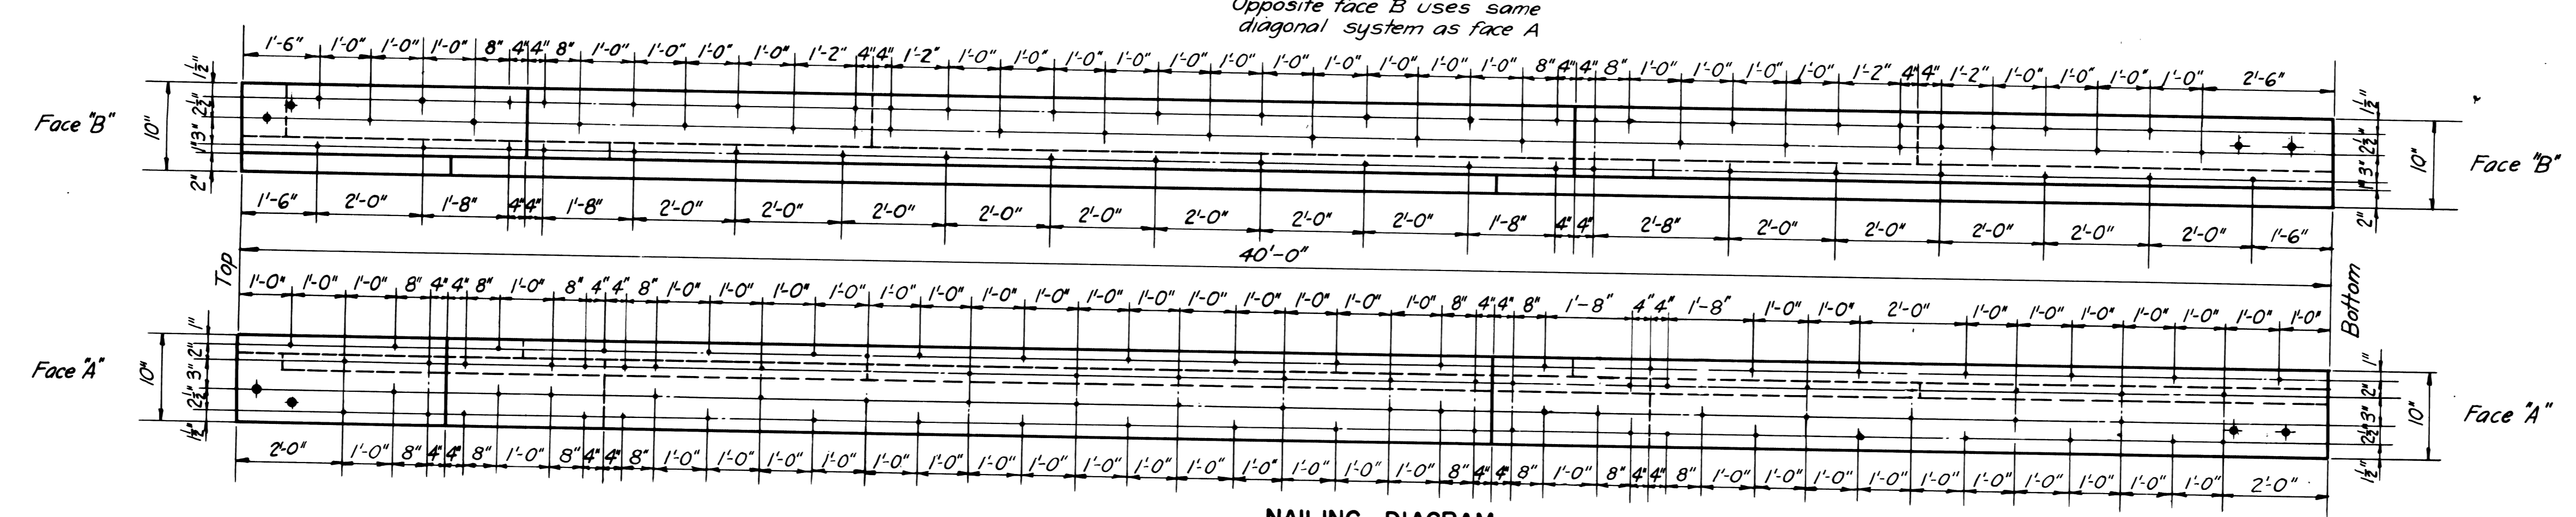 Opposite face B uses same
diagonal system as face A
1'-6" 1'-0" 1'-0" 1'-0" 8" 4" 4" 8" 1'-0" 1'-0" 1'-0" 1'-0" 1'-2" 4" 4" 1'-2" 1'-0" 1'-0" 1'-0" 1'-0" 1'-0" 1'-0" 1'-0" 1'-0" 1'-0" 1'-0" 1'-0" 8" 4" 4" 8" 1'-0" 1'-0" 1'-0" 1'-0" 1'-2" 4" 4" 1'-2" 1'-0" 1'-0" 1'-0" 1'-0" 2'-6"
Face "B" 10" 1½" 2½" 3" 1" 2"
1½" 2½" 3" 1" 2" 10" Face "B"
1'-6" 2'-0" 1'-8" 4" 4" 1'-8" 2'-0" 2'-0" 2'-0" 2'-0" 2'-0" 2'-0" 2'-0" 2'-0" 1'-8" 4" 4" 2'-8" 2'-0" 2'-0" 2'-0" 2'-0" 2'-0" 1'-6"
Top 40'-0" Bottom
1'-0" 1'-0" 1'-0" 8" 4" 4" 8" 1'-0" 8" 4" 4" 8" 1'-0" 1'-0" 1'-0" 1'-0" 1'-0" 1'-0" 1'-0" 1'-0" 1'-0" 1'-0" 1'-0" 1'-0" 1'-0" 1'-0" 1'-0" 8" 4" 4" 8" 1'-8" 4" 4" 1'-8" 1'-0" 1'-0" 2'-0" 1'-0" 1'-0" 1'-0" 1'-0" 1'-0" 1'-0" 1'-0"
Face "A" 10" 1" 2" 3" 2½" 1½"
1" 2" 3" 2½" 1½" 10" Face "A"
2'-0" 1'-0" 8" 4" 4" 8" 1'-0" 8" 4" 4" 8" 1'-0" 1'-0" 1'-0" 1'-0" 1'-0" 1'-0" 1'-0" 1'-0" 1'-0" 1'-0" 1'-0" 1'-0" 1'-0" 1'-0" 1'-0" 8" 4" 4" 8" 1'-0" 8" 4" 4" 8" 1'-0" 1'-0" 1'-0" 1'-0" 1'-0" 1'-0" 1'-0" 1'-0" 1'-0" 1'-0" 2'-0"
NAILING DIAGRAM